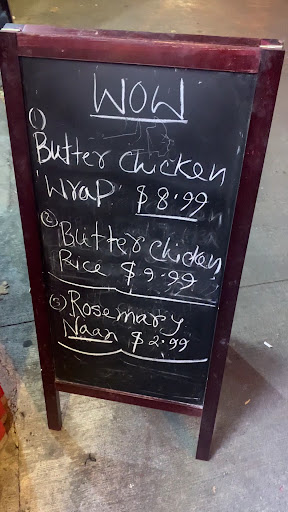 WOW
1)
Butter chicken
Wrap $8.99
② Butter chicken
Rice $9.99
③ Rosemary
Naan $2.99